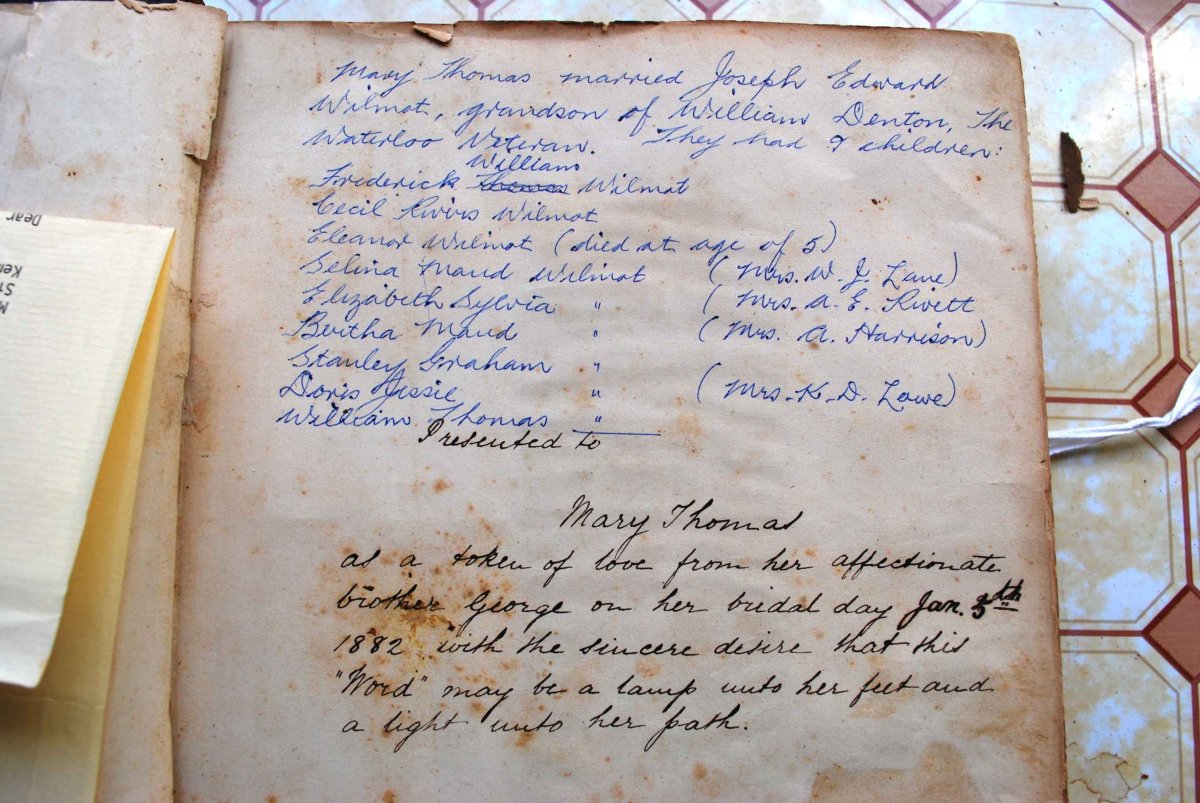 Mary Thomas married Joseph Edward
Wilmot, grandson of William Denton, The
Waterloo Veteran. They had 9 children:
William
Frederick Thomas Wilmot
Cecil Rivers Wilmot
Eleanor Wilmot (died at age of 5)
Selina Maud Wilmot (Mrs. W. J. Lane)
Elizabeth Sylvia " (Mrs. A. E. Rivett
Bertha Maud " (Mrs. A. Harrison)
Stanley Graham "
Doris Jessie " (Mrs. K. D. Lowe)
William Thomas "
Presented to
Mary Thomas
as a token of love from her affectionate
brother George on her bridal day Jan. 5th
1882 with the sincere desire that this
"Word" may be a lamp unto her feet and
a light unto her path.
Dear